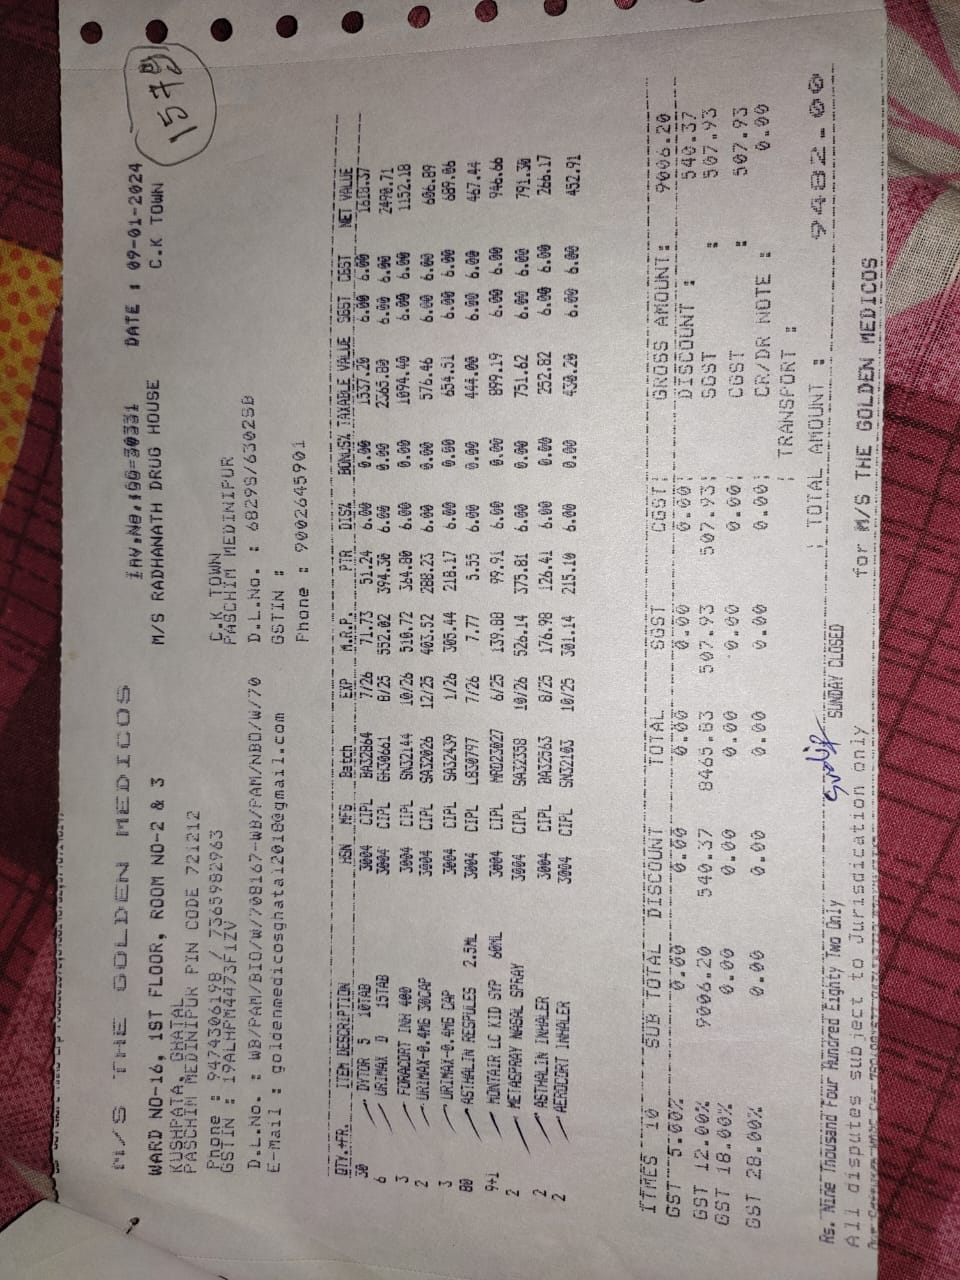 M/S THE GOLDEN MEDICOS
WARD NO-16, 1ST FLOOR, ROOM NO-2 & 3
KUSHPATA, GHATAL
PASCHIM MEDINIPUR PIN CODE 721212
Phone : 9474306198 / 7365982963
GSTIN : 19ALHPM4473F1ZV
D.L.No. : WB/PAM/BIO/W/708167-WB/PAM/NBO/W/70
E-mail : goldenmedicosghatal2018@gmail.com
Inv.No.:GO-30331 DATE : 09-01-2024
1579
M/S RADHANATH DRUG HOUSE C.K TOWN
C.K TOWN
PASCHIM MEDINIPUR
D.L.No. : 6829S/6302SB
GSTIN :
Phone : 9002645901
QTY.+FR. ITEM DESCRIPTION HSN MFG Batch EXP M.R.P. PTR DIS% BONUS% TAXABLE VALUE SGST CGST NET VALUE
30 DYTOR 5 10TAB 3004 CIPL BA32864 7/26 71.73 51.24 6.00 0.00 1537.20 6.00 6.00 1618.37
6 URIMAX D 15TAB 3004 CIPL GH30661 8/25 552.02 394.30 6.00 0.00 2365.80 6.00 6.00 2490.71
3 FORACORT INH 400 3004 CIPL SN32144 10/26 510.72 364.80 6.00 0.00 1094.40 6.00 6.00 1152.18
2 URIMAX-0.4MG 30CAP 3004 CIPL SA32026 12/25 403.52 288.23 6.00 0.00 576.46 6.00 6.00 606.89
3 URIMAX-0.4MG CAP 3004 CIPL SA32439 1/26 305.44 218.17 6.00 0.00 654.51 6.00 6.00 689.06
80 ASTHALIN RESPULES 2.5ML 3004 CIPL LB30797 7/26 7.77 5.55 6.00 0.00 444.00 6.00 6.00 467.44
9+1 MONTAIR LC KID SYP 60ML 3004 CIPL MRD23027 6/25 139.88 99.91 6.00 0.00 899.19 6.00 6.00 946.66
2 METASPRAY NASAL SPRAY 3004 CIPL SA32358 10/26 526.14 375.81 6.00 0.00 751.62 6.00 6.00 791.30
2 ASTHALIN INHALER 3004 CIPL 8/25 176.98 126.41 6.00 0.00 252.82 6.00 6.00 266.17
2 AEROCORT INHALER 3004 CIPL SN32103 10/25 301.14 215.10 6.00 0.00 430.20 6.00 6.00 452.91
ITMES 10 SUB TOTAL DISCOUNT TOTAL SGST CGST GROSS AMOUNT : 9006.20
GST 5.00% 0.00 0.00 0.00 0.00 0.00 DISCOUNT : 540.37
GST 12.00% 9006.20 540.37 8465.83 507.93 507.93 SGST : 507.93
GST 18.00% 0.00 0.00 0.00 0.00 0.00 CGST : 507.93
GST 28.00% 0.00 0.00 0.00 0.00 0.00 CR/DR NOTE : 0.00
TRANSPORT :
Rs. Nine Thousand Four Hundred Eighty Two Only SUNDAY CLOSED TOTAL AMOUNT : 9482.00
All disputes subject to Jurisdication only for M/S THE GOLDEN MEDICOS